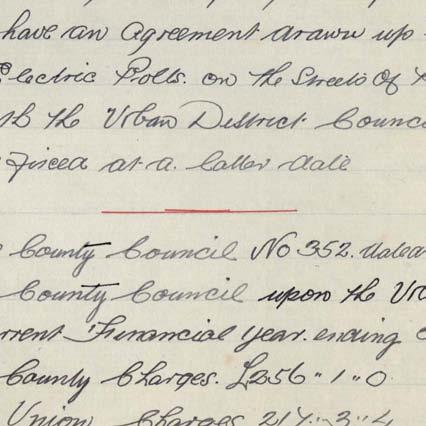 have an Agreement drawn up
Electric Polls. on the Streets of
the Urban District Counc
Fixed at a latter date
County Council No 352. dated
County Council upon the Ur
rrent Financial Year. ending
County Charges. £256"1"0
Union Charges 217"3"4